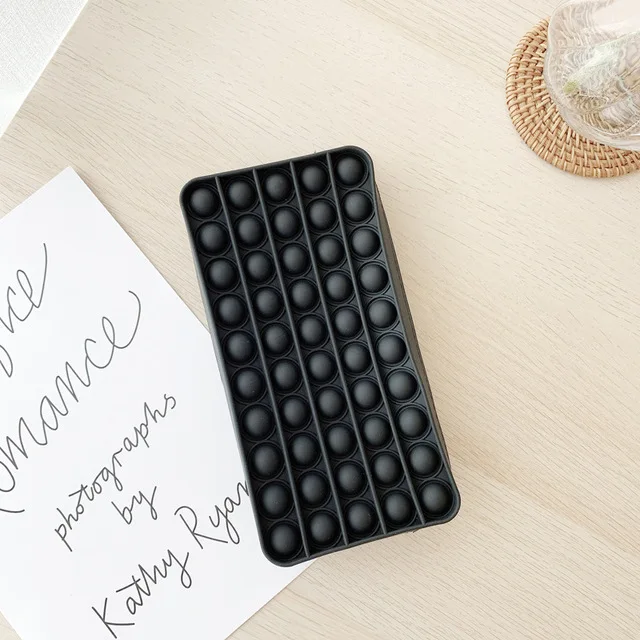 omance
photographs
by
Kathy Ryan